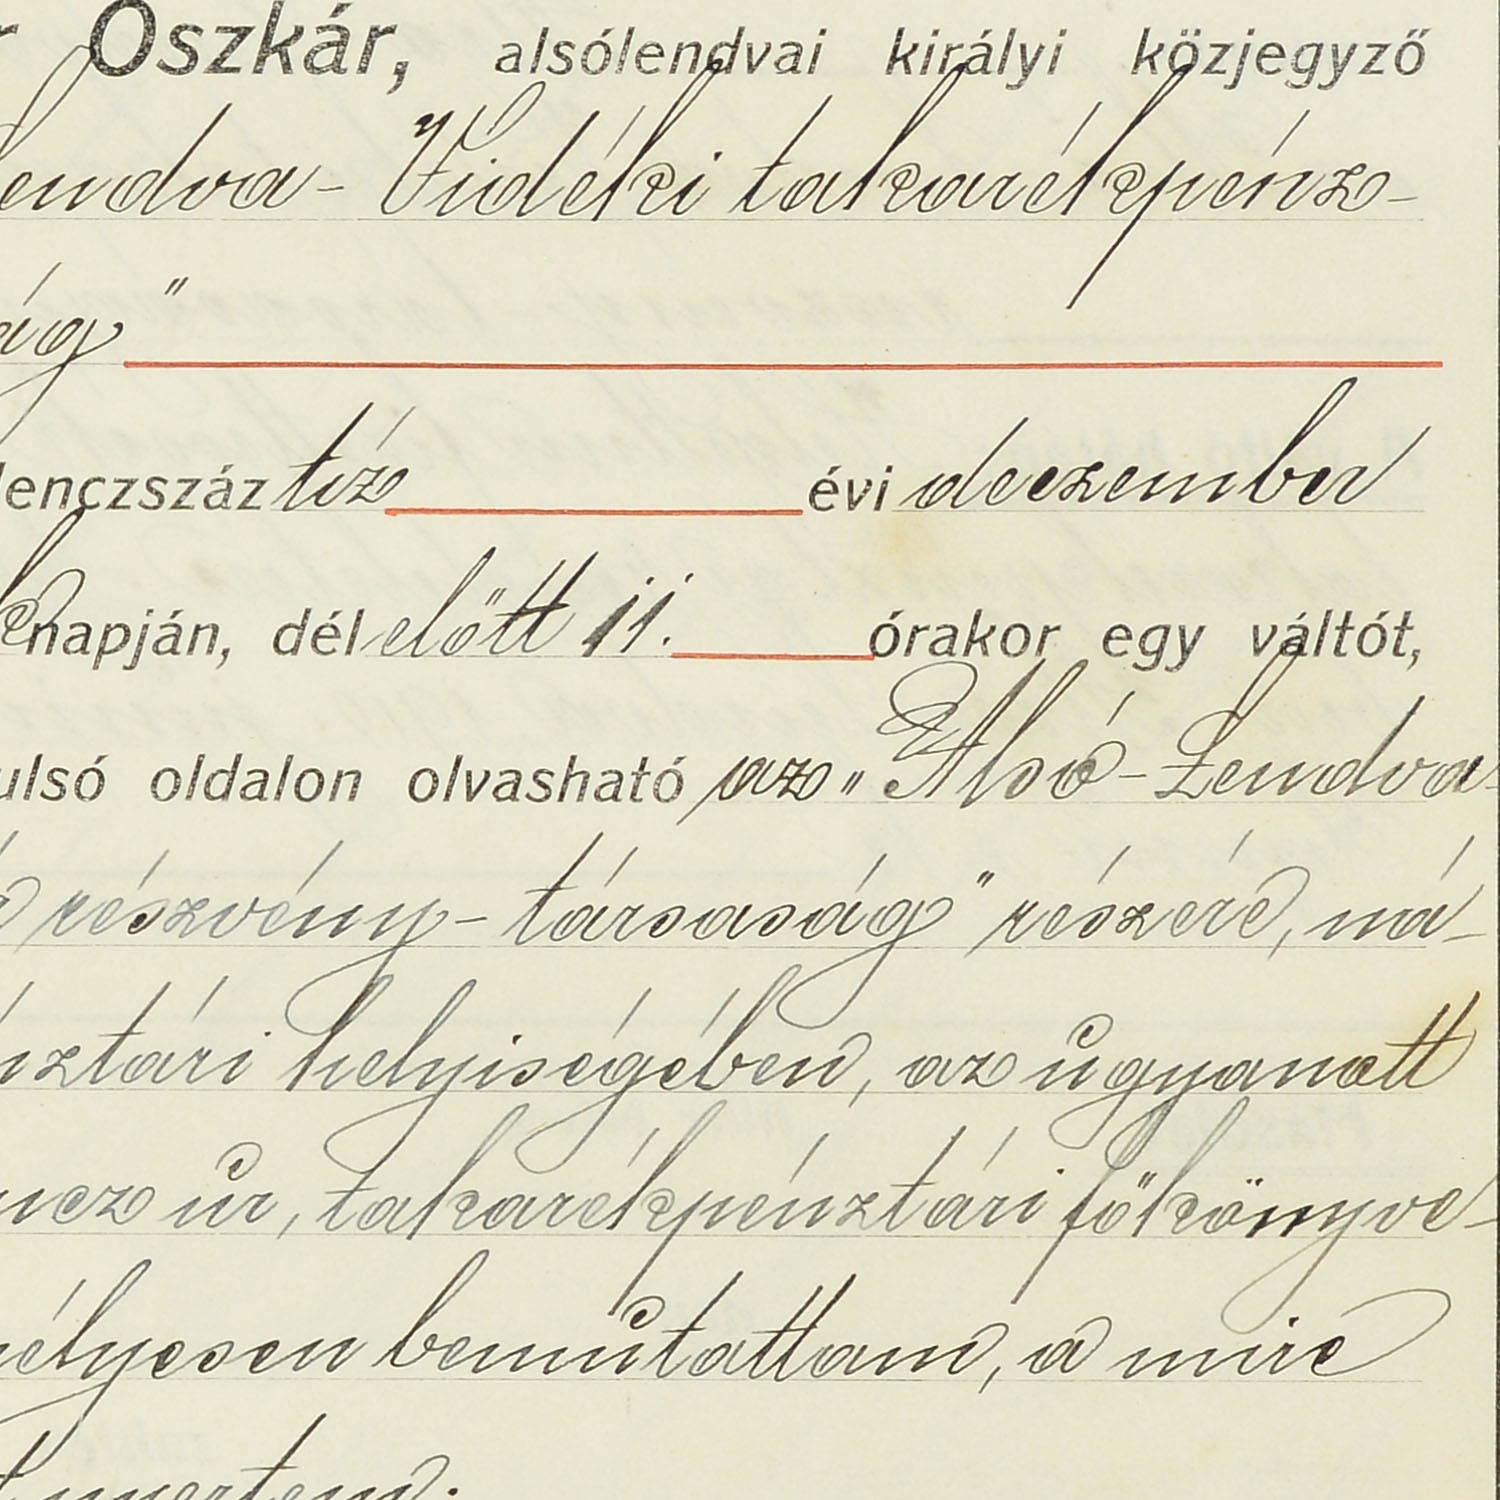 r Oszkár, alsólendvai királyi közjegyző
Lendva - Vidéki takarékpénz-
ág"
lenczszáz tíz évi deczember
napján, dél előtt 11. órakor egy váltót,
ulsó oldalon olvasható az „Alsó-Lendva-
részvény-társaság" részére, ná-
nztári helyiségében, az ugyanott
ncz úr, takarékpénztári főkönyve-
mélyesen bemutattam, a mire
nyertem.